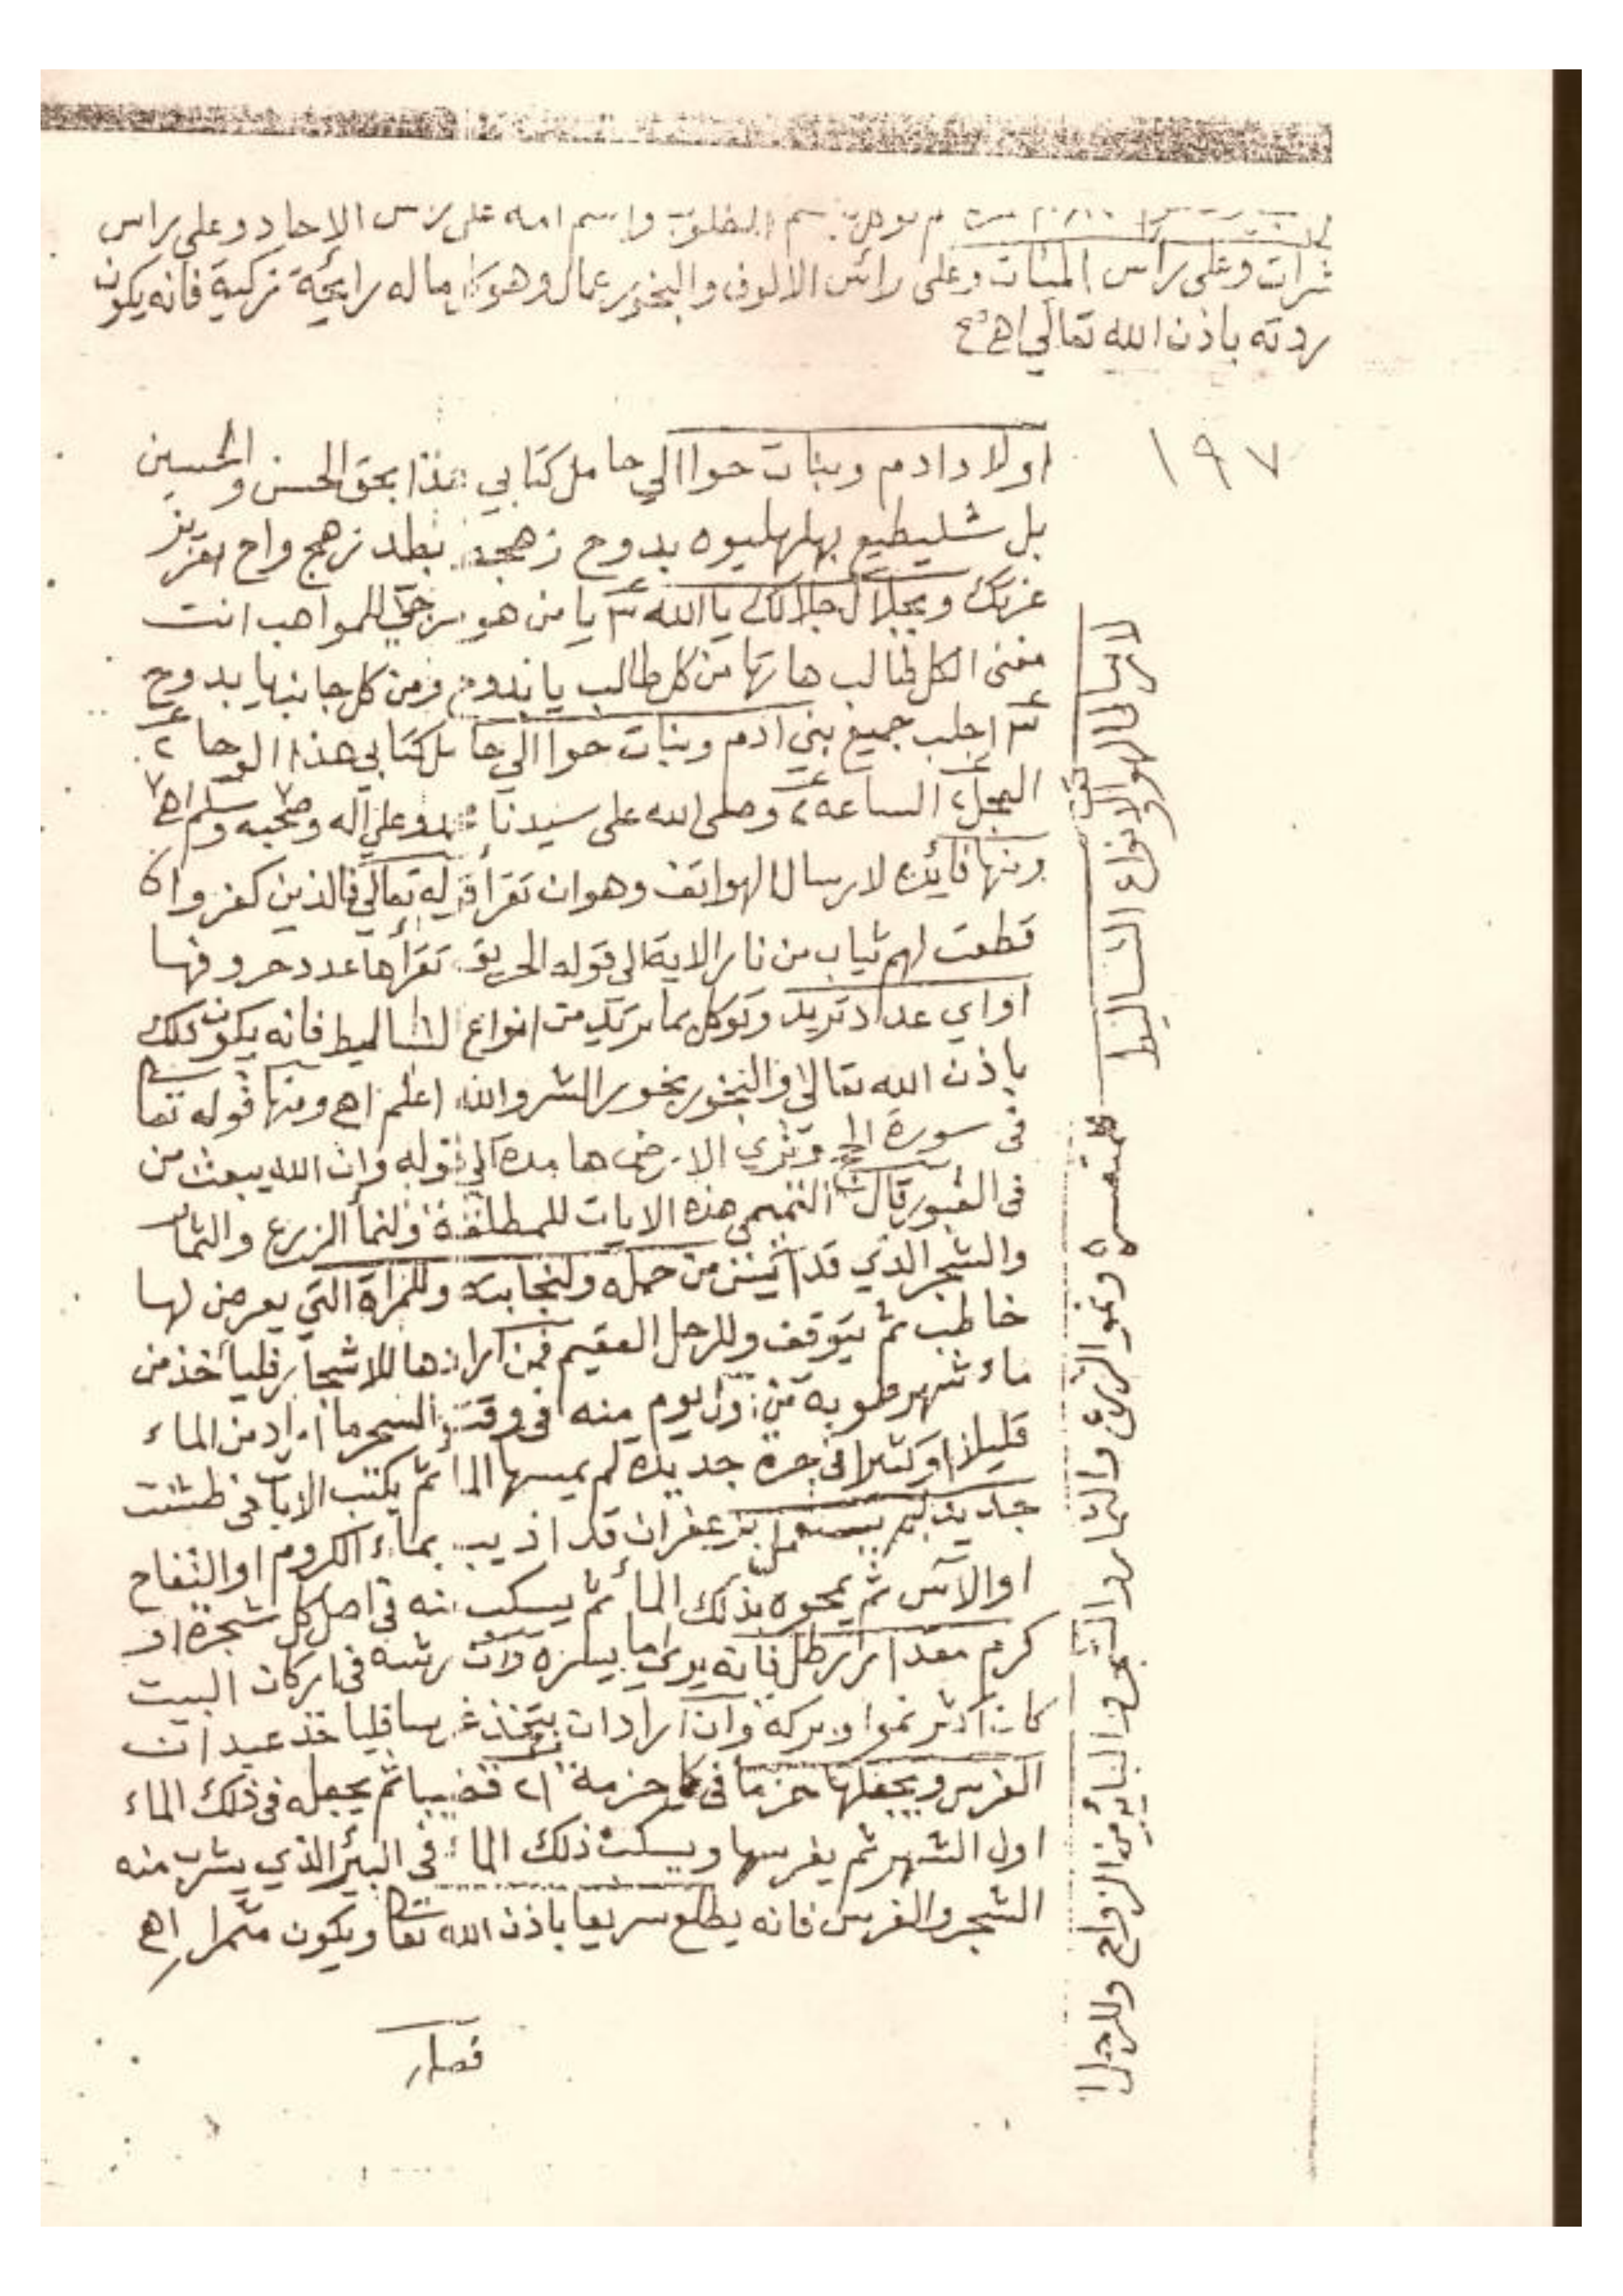 واسم امه على راس الاحاد وعلى راس
وعلى راس المئات وعلى رائس الالوف والبخور عمال وهو كل ما له رايحة زكية فانه يكون
ردته باذن الله تعالي اهـ
١٩٧
اولاد ادم وبنات حوا الي حامل كتابي هذا بحق الحسن والحسين
بل شليطيع بهلهليوه بدوح زهج بطد زهج واح بعزيز
عزتك وبجلال جلالك يا الله ٣ يا من هو يرجي للمواهب انت
مغنى الكل طالب هاتها من كل طالب يا بدوح ومن كل جانب يا بدوح
٣ اجلب جميع بني ادم وبنات حوا الي حامل كتابي هذا الوحا ٢
العجل ٢ الساعه ٢ وصلى الله على سيدنا محمد وعلي اله وصحبه وسلم اهـ
ومنها فائده لارسال الهواتف وهو ان تقرأ قوله تعالي فالذين كفروا
قطعت لهم ثياب من نار الاية الى قوله الحريق تقرأها عدد حروفها
او اي عدد تريد وتوكل بما تريد من انواع التساليط فانه يكون ذلك
باذن الله تعالى والبخور بخور الشر والله اعلم اهـ ومنها قوله تعا
فى سورة الحج وتري الارض هامدة الي قوله وان الله يبعث من
فى القبور قال التميمى هذه الايات للمطلقة ولنما الزرع والثمار
والشجر الذي قد من حمله ولنجابته وللمراة التي يعرض لها
خاطب ثم يتوقف وللرجل العقيم فمن ارادها للاشجار فليأخذ من
ماء شهر طوبه من اول يوم منه فى وقت السحر ما اراد من الماء
قليلا او كثيرا فى جرة جديدة لم يمسها الماء ثم يكتب الايات فى طشت
جديد لم يستعمل بزعفران قد اذيب بماء الكروم او التفاح
او الآس ثم يمحوه بذلك الماء ثم يسكب منه في اصل كل شجرة او
كرم مقدار رطل فانه يري ما يسره وان رشه فى اركان البيت
كان اكثر نموا وبركة وان اراد ان يتخذ غرسا فليأخذ عيدان
الغرس ويجعلها حزما فى كل حزمة ٢١ قضيبا ثم يجعله فى ذلك الماء
اول الشهر ثم يغرسها ويسكب ذلك الماء فى البير الذي يشرب منه
الشجر والغرس فانه يطلع سريعا باذن الله تعا ويكون مثمرا اهـ
لارسال الهواتف ولانواع التساليط
للمتعسرة ونمو الزرع والثمار والشجر والبنات من الزواج وللرجل